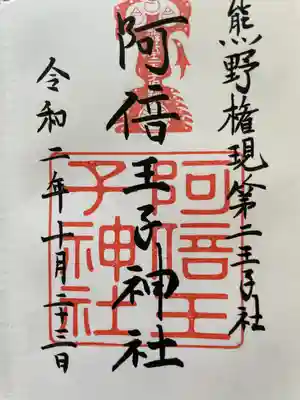 熊野権現第二王子社
阿倍王子神社
令和二年十月二十二日
阿倍王
子神社